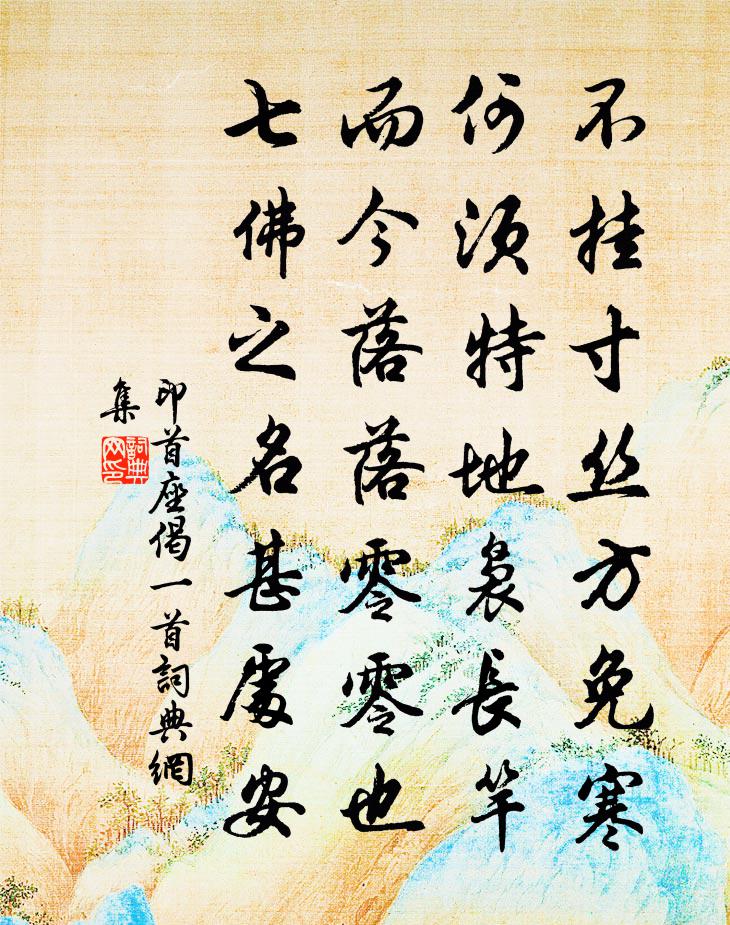 不挂寸丝方免寒
何须特地袅长竿
而今落落零零也
七佛之名甚處安
印首座偈一首詞典網
集
詞典網印